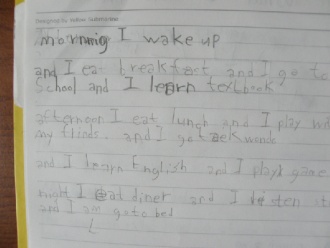 Designed by Yellow Submarine
morning I wake up
and I eat breakfast and I go to
School and I learn textbook
afternoon I eat lunch and I play wit
my and I go taekwondo
and I learn English and I play game
night I eat diner and I
and I am go to bed